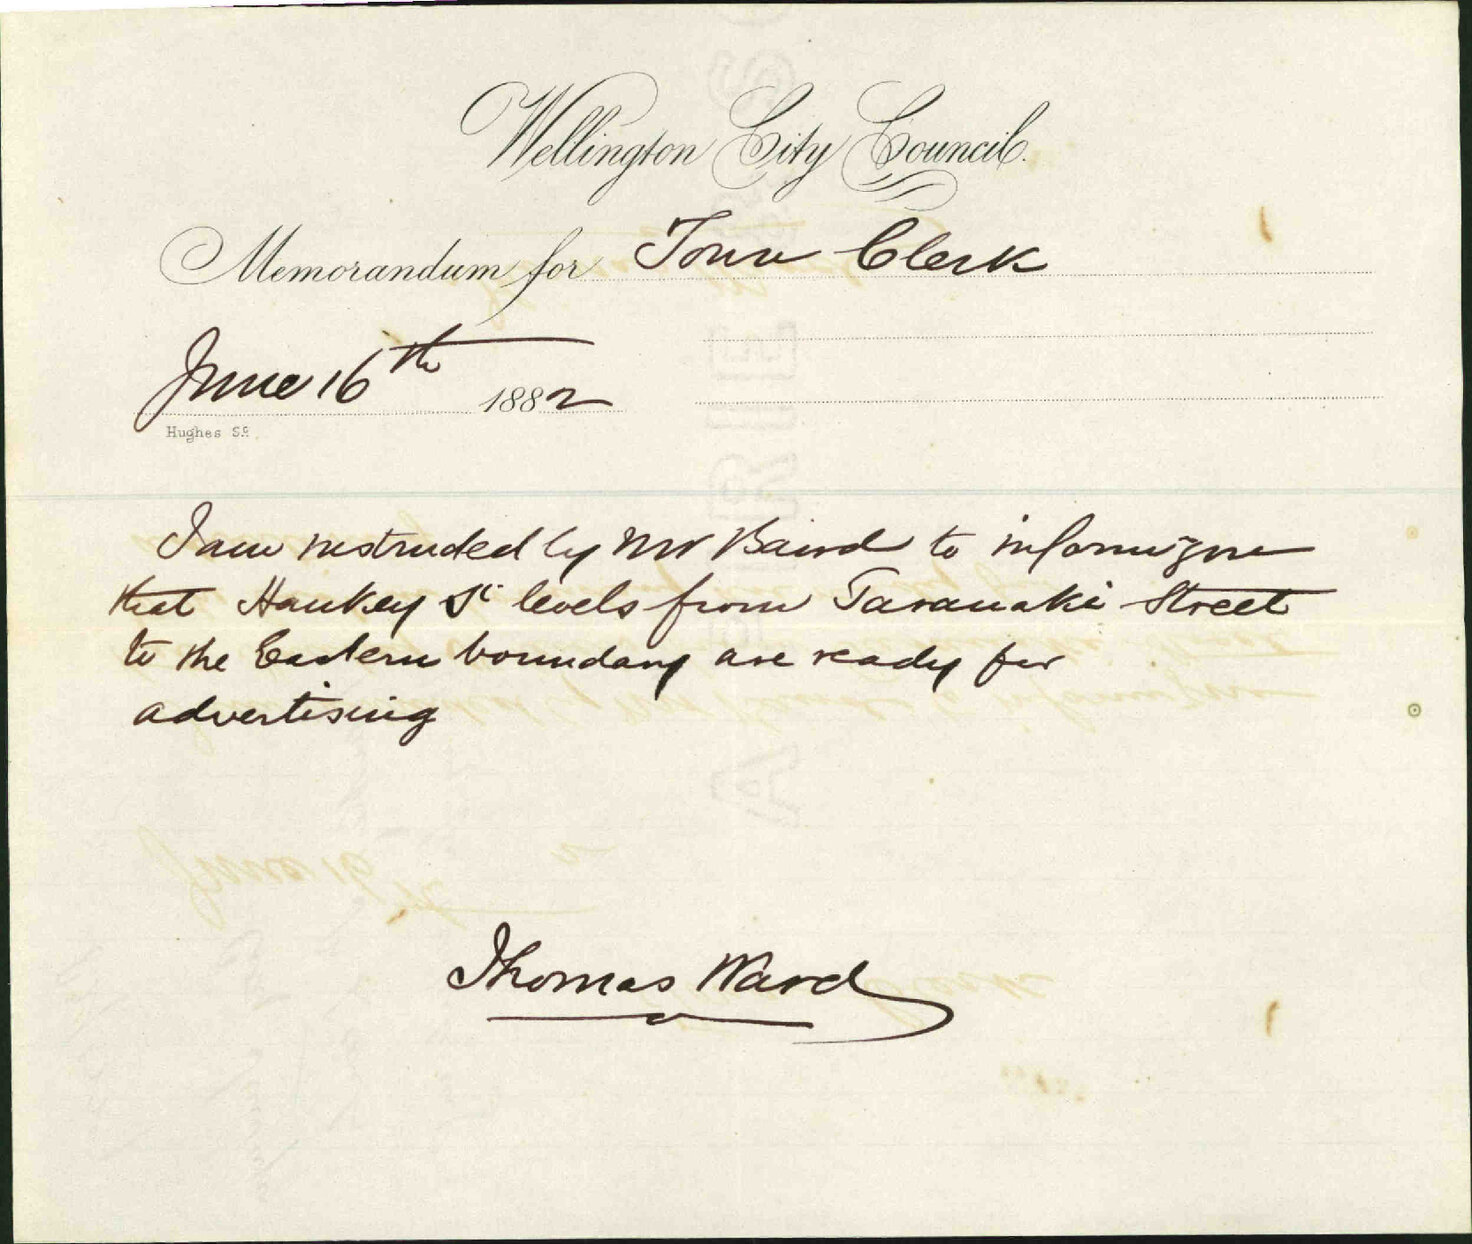 Wellington City Council.
Memorandum for Town Clerk
June 16th 1882
Hughes Sc
I am instructed by Mr Baird to inform you
that Hankey St levels from Taranaki Street
to the Eastern boundary are ready for
advertising
Thomas Ward